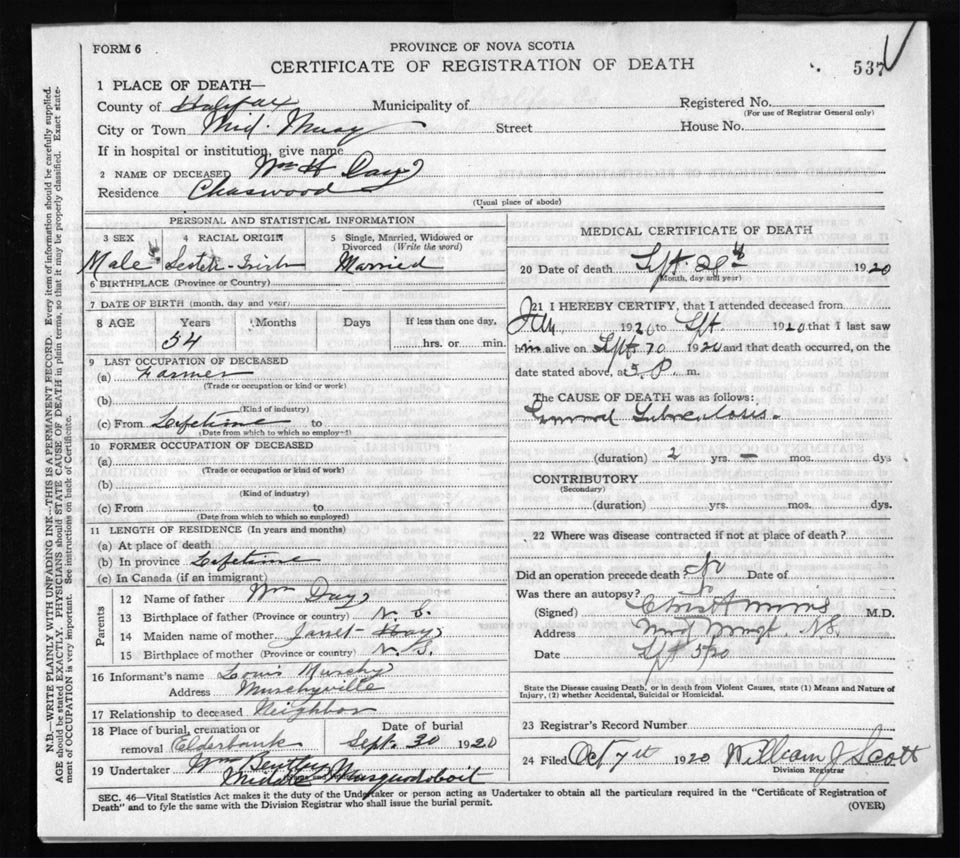 FORM 6
PROVINCE OF NOVA SCOTIA
CERTIFICATE OF REGISTRATION OF DEATH
537
1 PLACE OF DEATH—
County of Halifax Municipality of Registered No.
(For use of Registrar General only)
City or Town Mid. Musq Street House No.
If in hospital or institution, give name
2 NAME OF DECEASED Wm H Day
Residence Chaswood
(Usual place of abode)
PERSONAL AND STATISTICAL INFORMATION
3 SEX 4 RACIAL ORIGIN 5 Single, Married, Widowed or Divorced (Write the word)
Male Scotch-Irish Married
6 BIRTHPLACE (Province or Country)
7 DATE OF BIRTH (month, day and year)
8 AGE Years Months Days If less than one day,
54 hrs. or min.
9 LAST OCCUPATION OF DECEASED
(a) Farmer
(Trade or occupation or kind or work)
(b)
(Kind of industry)
(c) From Lifetime to
(Date from which to which so employed)
10 FORMER OCCUPATION OF DECEASED
(a)
(Trade or occupation or kind of work)
(b)
(Kind of industry)
(c) From to
(Date from which to which so employed)
11 LENGTH OF RESIDENCE (In years and months)
(a) At place of death
(b) In province Lifetime
(c) In Canada (if an immigrant)
Parents
12 Name of father Wm Day
13 Birthplace of father (Province or country) N. S.
14 Maiden name of mother Janet
15 Birthplace of mother (Province or country) N. S.
16 Informant's name Louis Murchy
Address Murchyville
17 Relationship to deceased Neighbor
18 Place of burial, cremation or removal Elderbank
Date of burial
Sept. 30 1920
19 Undertaker Wm Bentley
Middle Musquodoboit
MEDICAL CERTIFICATE OF DEATH
20 Date of death Sept. 28th 1920
(Month, day and year)
21 I HEREBY CERTIFY, that I attended deceased from
1920 to Sept 1920 that I last saw
him alive on Sept. 1920 and that death occurred, on the
date stated above, at 5. P. m.
The CAUSE OF DEATH was as follows:
General Tuberculosis.
(duration) 2 yrs. — mos. dys
CONTRIBUTORY
(Secondary)
(duration) yrs. mos. dys.
22 Where was disease contracted if not at place of death?
Did an operation precede death? No Date of
Was there an autopsy?
(Signed) M.D.
Address N.S.
Date
State the Disease causing Death, or in death from Violent Causes, state (1) Means and Nature of
Injury, (2) whether Accidental, Suicidal or Homicidal.
23 Registrar's Record Number
24 Filed Oct 7th 1920 William J Scott
Division Registrar
SEC. 46—Vital Statistics Act makes it the duty of the Undertaker or person acting as Undertaker to obtain all the particulars required in the "Certificate of Registration of
Death" and to fyle the same with the Division Registrar who shall issue the burial permit.
(OVER)
N.B.—WRITE PLAINLY WITH UNFADING INK—THIS IS A PERMANENT RECORD. Every item of information should be carefully supplied.
AGE should be stated EXACTLY. PHYSICIANS should STATE CAUSE OF DEATH in plain terms, so that it may be properly classified. Exact state-
ment of OCCUPATION is very important. See instructions on back of Certificate.